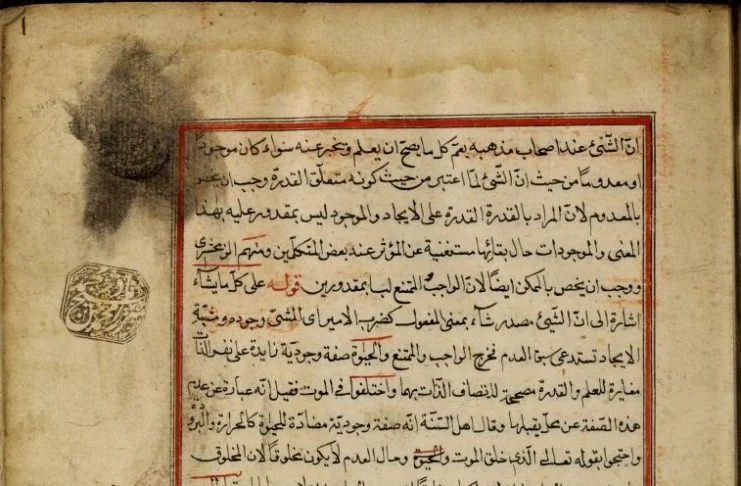 انّ الشّئ عند اصحاب مذهبه يعمّ كل ما يصحّ ان يعلم ويخبر عنه سواء كان موجودًا
او معدومًا من حيث انّ الشّئ لمّا اعتبر من حيث كونه متعلّق القدرة وجب ان
بالمعدوم لانّ المراد بالقدرة القدرة على الايجاد والموجود ليس بمقدور عليه بهذا
المعنى والموجودات حال بقائها مستغنية عن المؤثر عند بعض المتكلّمين ومنهم الزمخشرى
ووجب ان يخص بالممكن ايضًا لانّ الواجب والممتنع ليسا بمقدورين قوله على كلّ ما يشاء
اشارة الى انّ الشّئ مصدر شاء بمعنى المفعول كضرب الامير اى المشئ وجوده ومشيّة
الايجاد تستدعى سبق العدم فخرج الواجب والممتنع والحيوة صفة وجوديّة زايدة على نفس الذّات
مغايرة للعلم والقدرة مصححة لاتصاف الذّات بهما واختلفوا فى الموت فقيل انّه عبارة عن عدم
هذه الصّفة عن محلّ يقبلها وقال اهل السّنّة انّه صفة وجوديّة مضادّة للحيوة كالحرارة والبرو
واحتجوا بقوله تعالى الّذى خلق الموت والحيوة وحال العدم لا يكون مخلوقًا لان المخلوق